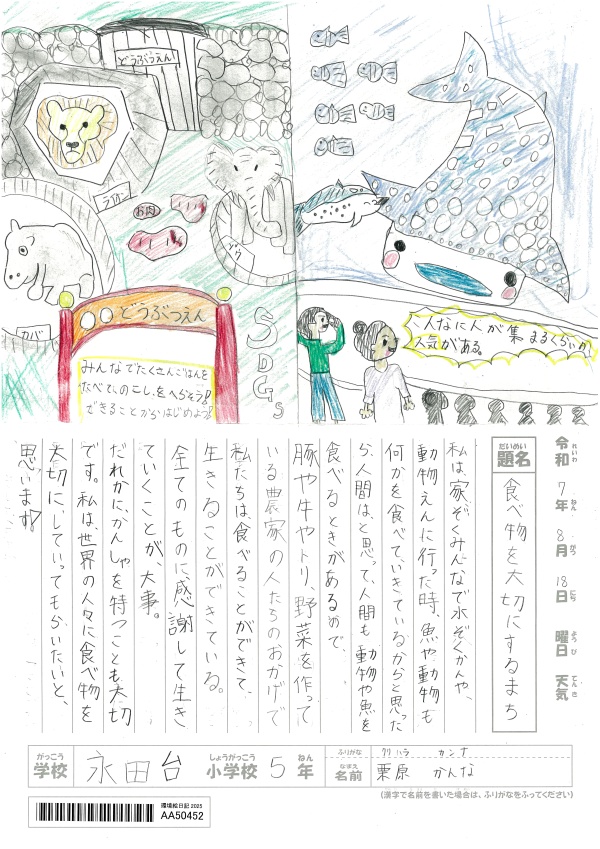 どうぶつえん
ライオン
お肉
ゾウ
カバ
○○どうぶつえん
みんなでたくさんごはんを
たべて、のこしをへらそう!
できることからはじめよう!
SDGs
こんなに人が集まるくらい
人気がある。
令和7年8月18日 曜日 天気
れいわ ねん がつ にち ようび てんき
だいめい
題名
食べ物を大切にするまち
私は、家ぞくみんなで水ぞくかんや、
動物えんに行った時、魚や動物も
何かを食べていきているからと思った
ら、人間は、と思って、人間も動物や魚を
食べるときがあるので、
豚や牛やトリ、野菜を作って
いる農家の人たちのおかげで
私たちは、食べることができて、
生きることができている。
全てのものに、感謝して生き
ていくことが、大事。
だれかに、かんしゃを持つことも大切
です。私は世界の人々に食べ物を
大切に、していってもらいたいと、
思います。
がっこう しょうがっこう ねん
学校 永田台 小学校 5年
ふりがな クリハラ カンナ
なまえ
名前 栗原 かんな
(漢字で名前を書いた場合は、ふりがなをふってください)
環境絵日記 2025
AA50452